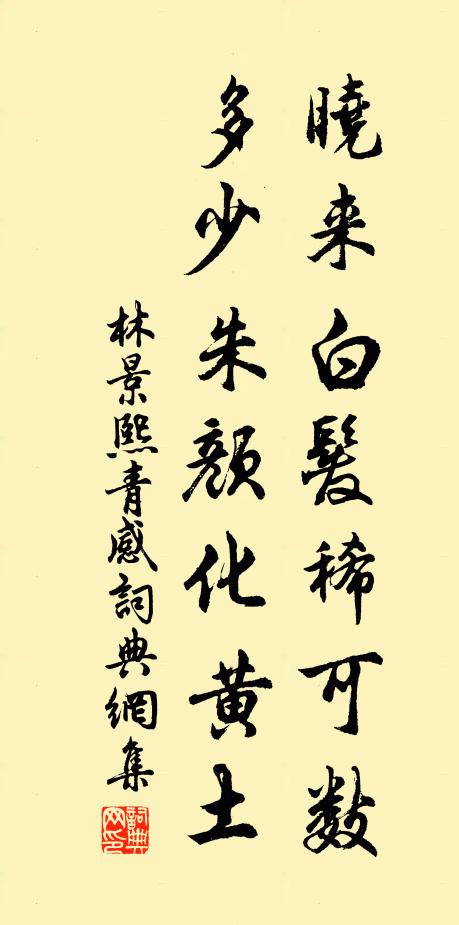 曉来白髮稀可數
多少朱顏化黃土
林景熙青感詞典網集
詞典网印